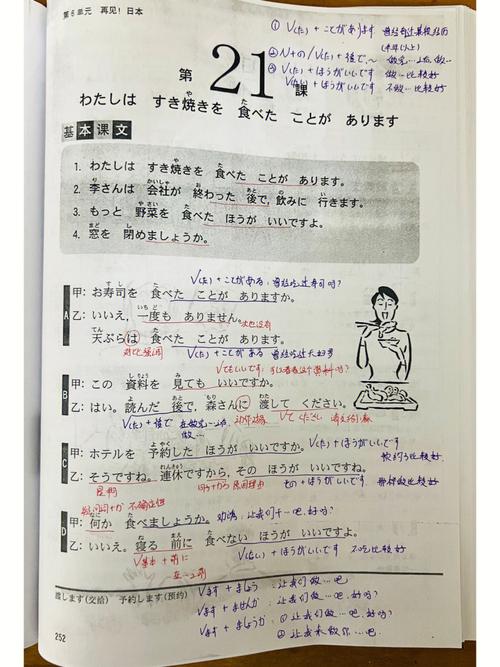 第6单元 再见!日本
① V(た)+ことがあります 曾经有过某段经历
(半年以上)
② N+の/V(た)+後で、~ 做完…之后,做…
③ V(た)+ほうがいいです 做…比较好
V(ない)+ほうがいいです 不做…比较好
第21課
わたしは すき焼きを 食べた ことが あります
基本课文
1. わたしは すき焼きを 食べた ことが あります。
2. 李さんは 会社が 終わった 後で, 飲みに 行きます。
3. もっと 野菜を 食べた ほうが いいですよ。
4. 窓を 閉めましょうか。
V(た)+ことがある:曾经吃过寿司吗?
A
甲: お寿司を 食べた ことが ありますか。
乙: いいえ, 一度も ありません。一次也没有
天ぷらは 食べた ことが あります。
对比强调 V(た)+ことがある 曾经吃过天妇罗
Vてもいいです
B
甲: この 資料を 見ても いいですか。
乙: はい。読んだ 後で, 森さんに 渡して ください。
V(た)+後で 在做完…之后 动作对象 Vてください
做…
C
甲: ホテルを 予約した ほうが いいですか。V(た)+ほうがいいです
乙: そうですね。連休ですから, その ほうが いいですね。
是啊 原因理由 その+ほうがいいです 那样做比较好
疑问词+か 不确定性
D
甲: 何か 食べましょうか。劝诱:让我们十…吧,好吗?
乙: いいえ。寝る 前に 食べない ほうが いいですよ。
V基本+前に V(ない)+ほうがいいです 不吃比较好
在…之前
渡します(交给) 予約します(预约)
Vます+ましょう:让我们做…吧.
Vます+ませんか:让我们做…吧.好吗?
Vます+ましょうか:①让我们做…吧.好吗?
②让我来做…吧.
252